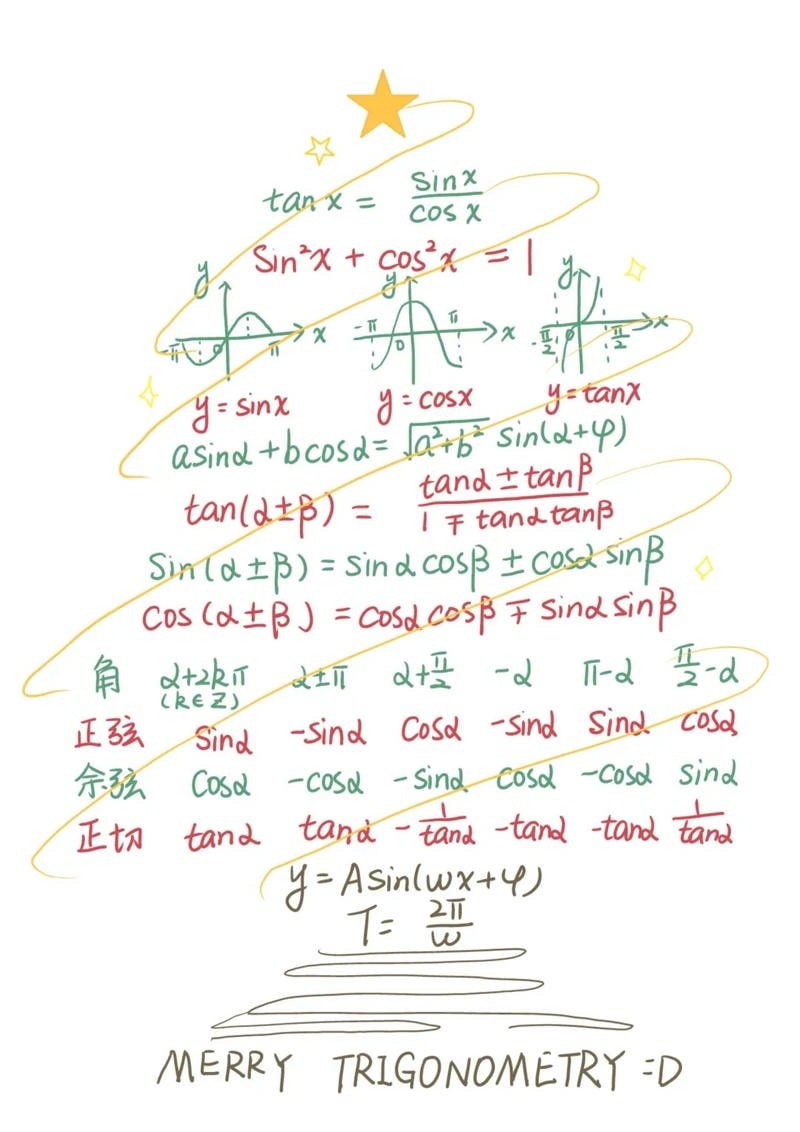 tan x = sin x / cos x
Sin²x + cos²x = 1
y y y
-π 0 π x -π 0 π x -π/2 0 π/2 x
y = sinx y = cosx y = tanx
asinα + bcosα = √(a²+b²) sin(α+φ)
tan(α±β) = (tanα ± tanβ) / (1 ∓ tanα tanβ)
Sin(α±β) = sinα cosβ ± cosα sinβ
cos(α±β) = cosα cosβ ∓ sinα sinβ
角 α+2kπ α±π α+π/2 -α π-α π/2-α
(k∈Z)
正弦 sinα -sinα cosα -sinα sinα cosα
余弦 cosα -cosα -sinα cosα -cosα sinα
正切 tanα tanα -1/tanα -tanα -tanα 1/tanα
y = Asin(ωx+φ)
T = 2π/ω
MERRY TRIGONOMETRY =D